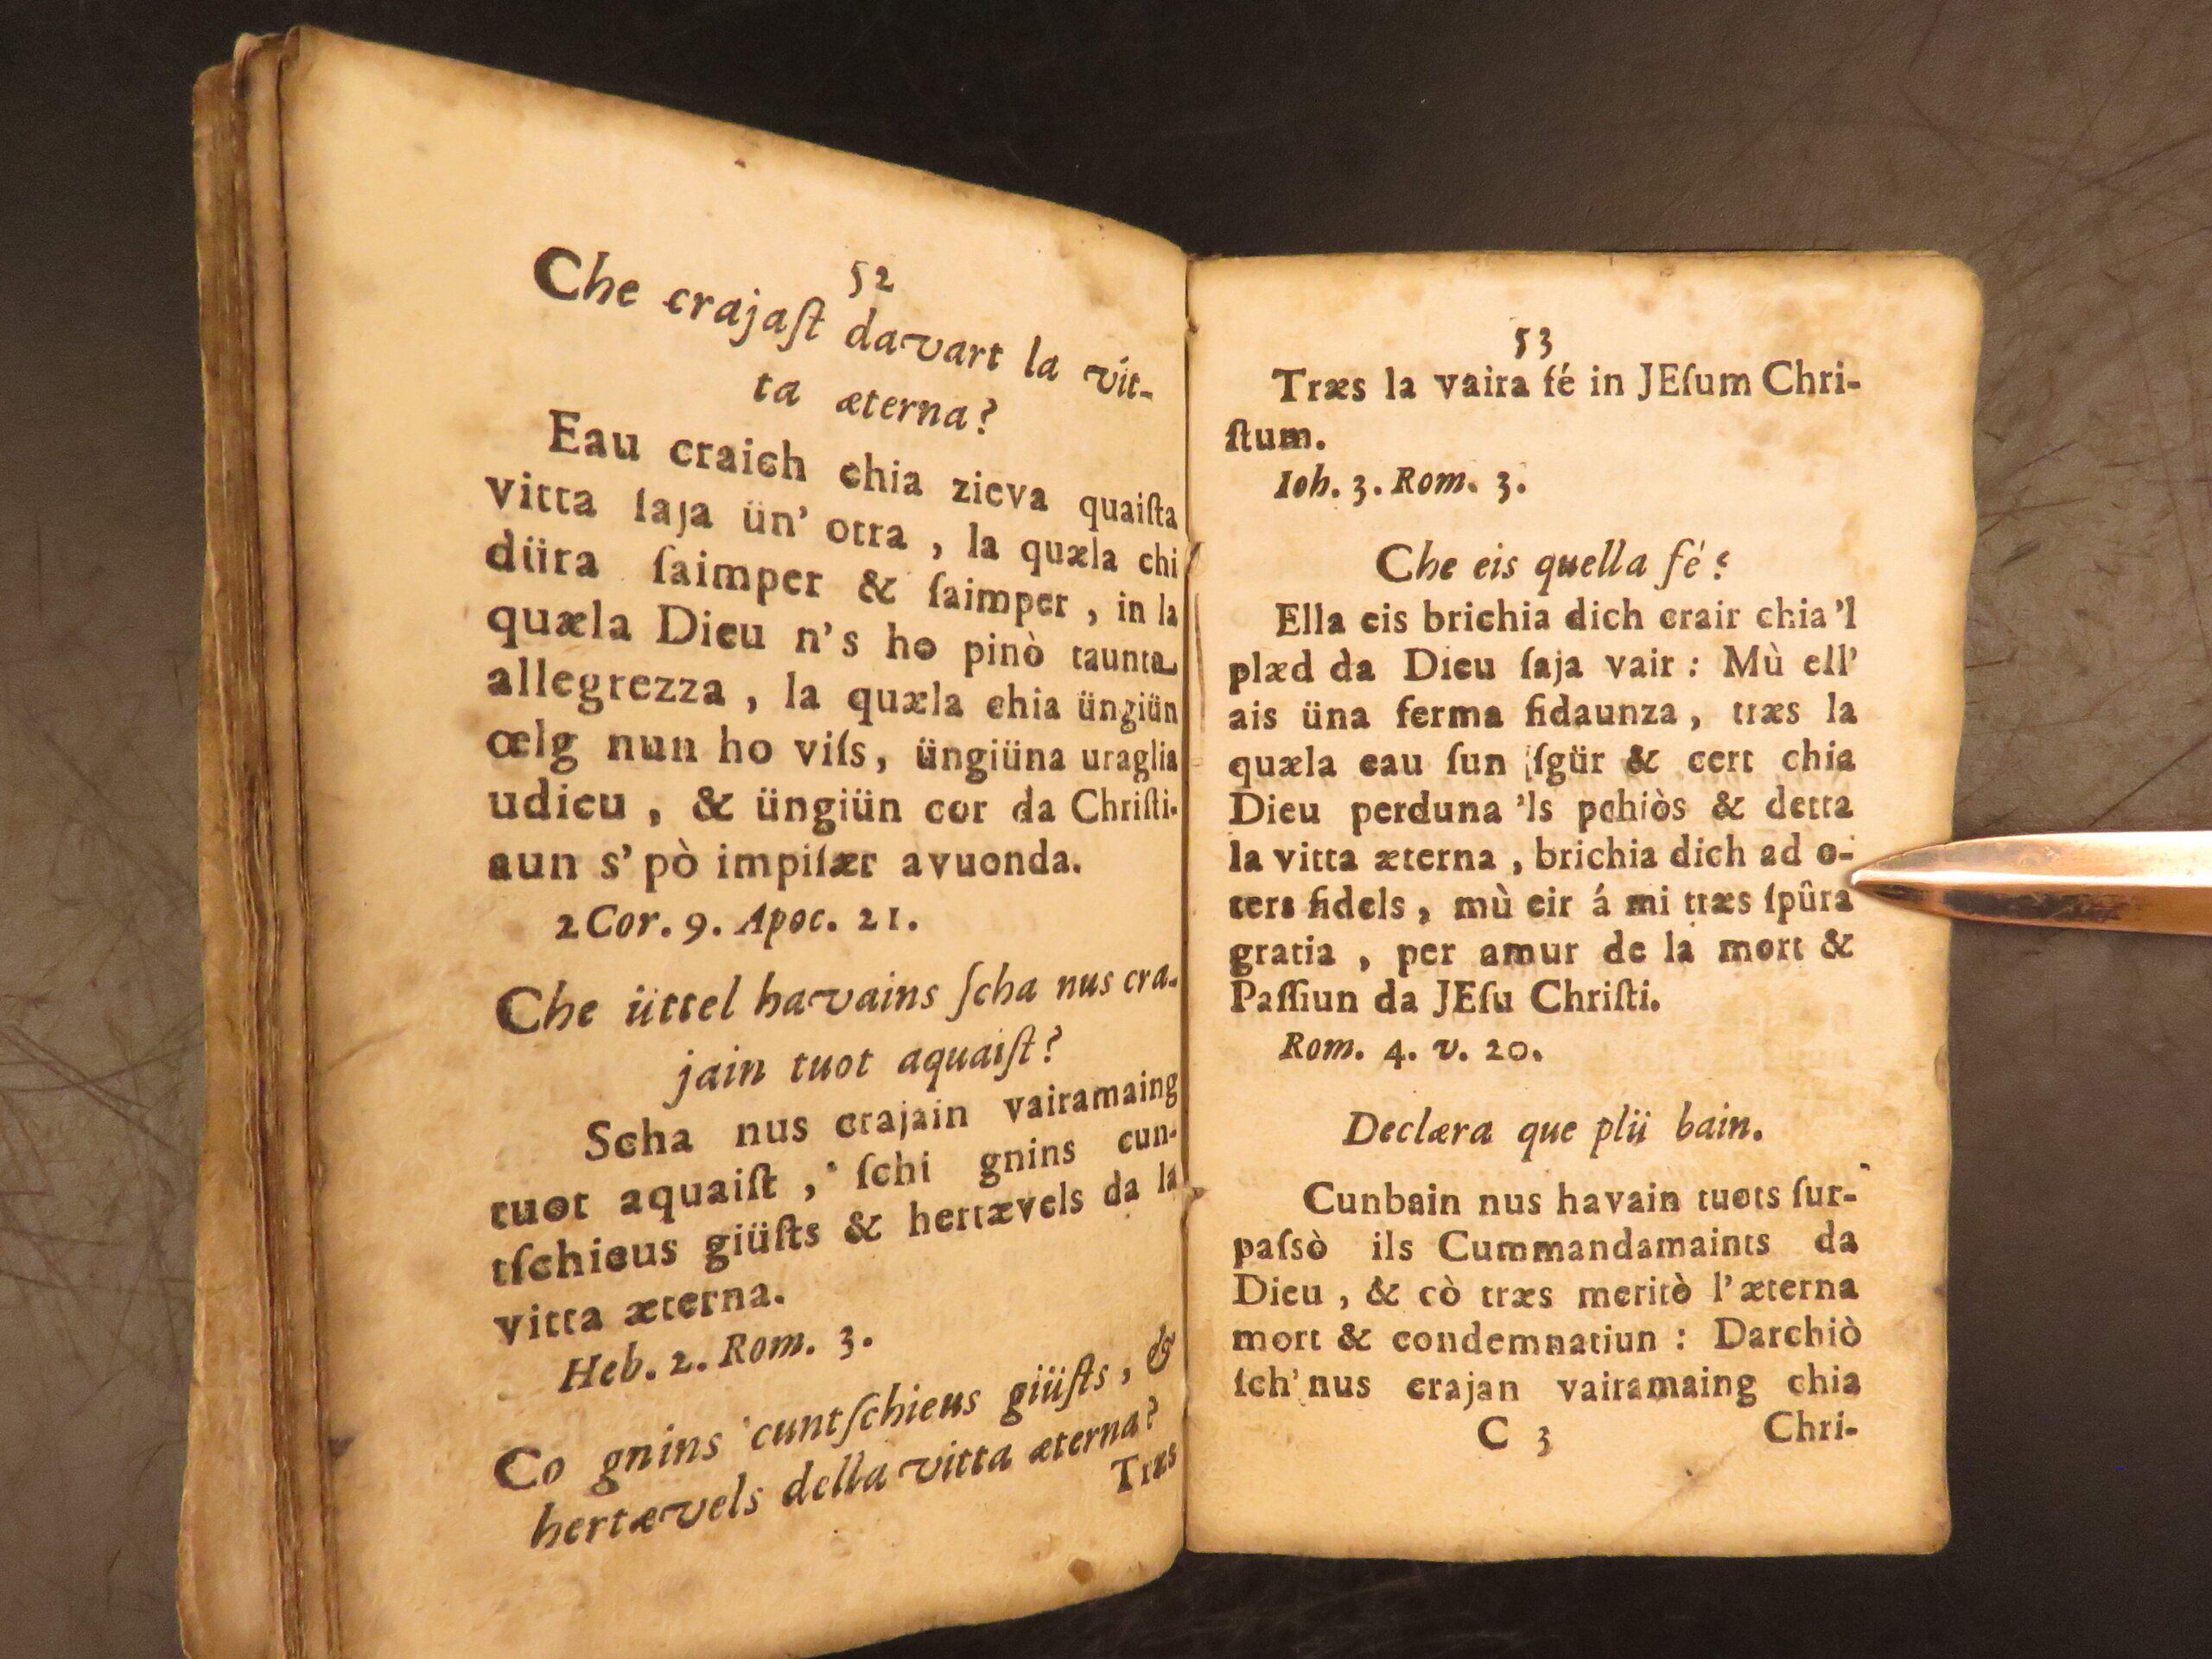 52
Che crajaſt davart la vit-
ta æterna?
Eau craich chia zieva quaiſta
vitta ſaja ün' otra , la quæla chi
düra ſaimper & ſaimper , in la
quæla Dieu n's ho pinò taunta
allegrezza , la quæla chia üngiün
œlg nun ho viſs, üngiüna uraglia
udieu , & üngiün cor da Chriſti-
aun s' pò impiſær avuonda.
2 Cor. 9. Apoc. 21.
Che üttel havains ſcha nus cra-
jain tuot aquaiſt?
Scha nus crajain vairamaing
tuot aquaiſt , ſchi gnins cun-
tſchieus giüſts & hertævels da la
vitta æterna.
Heb. 2. Rom. 3.
Co gnins cuntſchieus giüſts, &
hertævels della vitta æterna?
Træs
53
Træs la vaira fé in JEſum Chri-
ſtum.
Ioh. 3. Rom. 3.
Che eis quella fé?
Ella eis brichia dich crair chia 'l
plæd da Dieu ſaja vair : Mù ell'
ais üna ferma fidaunza, træs la
quæla eau ſun ſgür & cert chia
Dieu perduna 'ls pchiòs & detta
la vitta æterna , brichia dich ad o-
ters fidels , mù eir á mi træs ſpûra
gratia , per amur de la mort &
Paſſiun da JEſu Chriſti.
Rom. 4. v. 20.
Declæra que plü bain.
Cunbain nus havain tuots ſur-
paſsò ils Cummandamaints da
Dieu , & cò træs meritò l'æterna
mort & condemnatiun : Darchiò
ſch' nus crajan vairamaing chia
C 3 Chri-